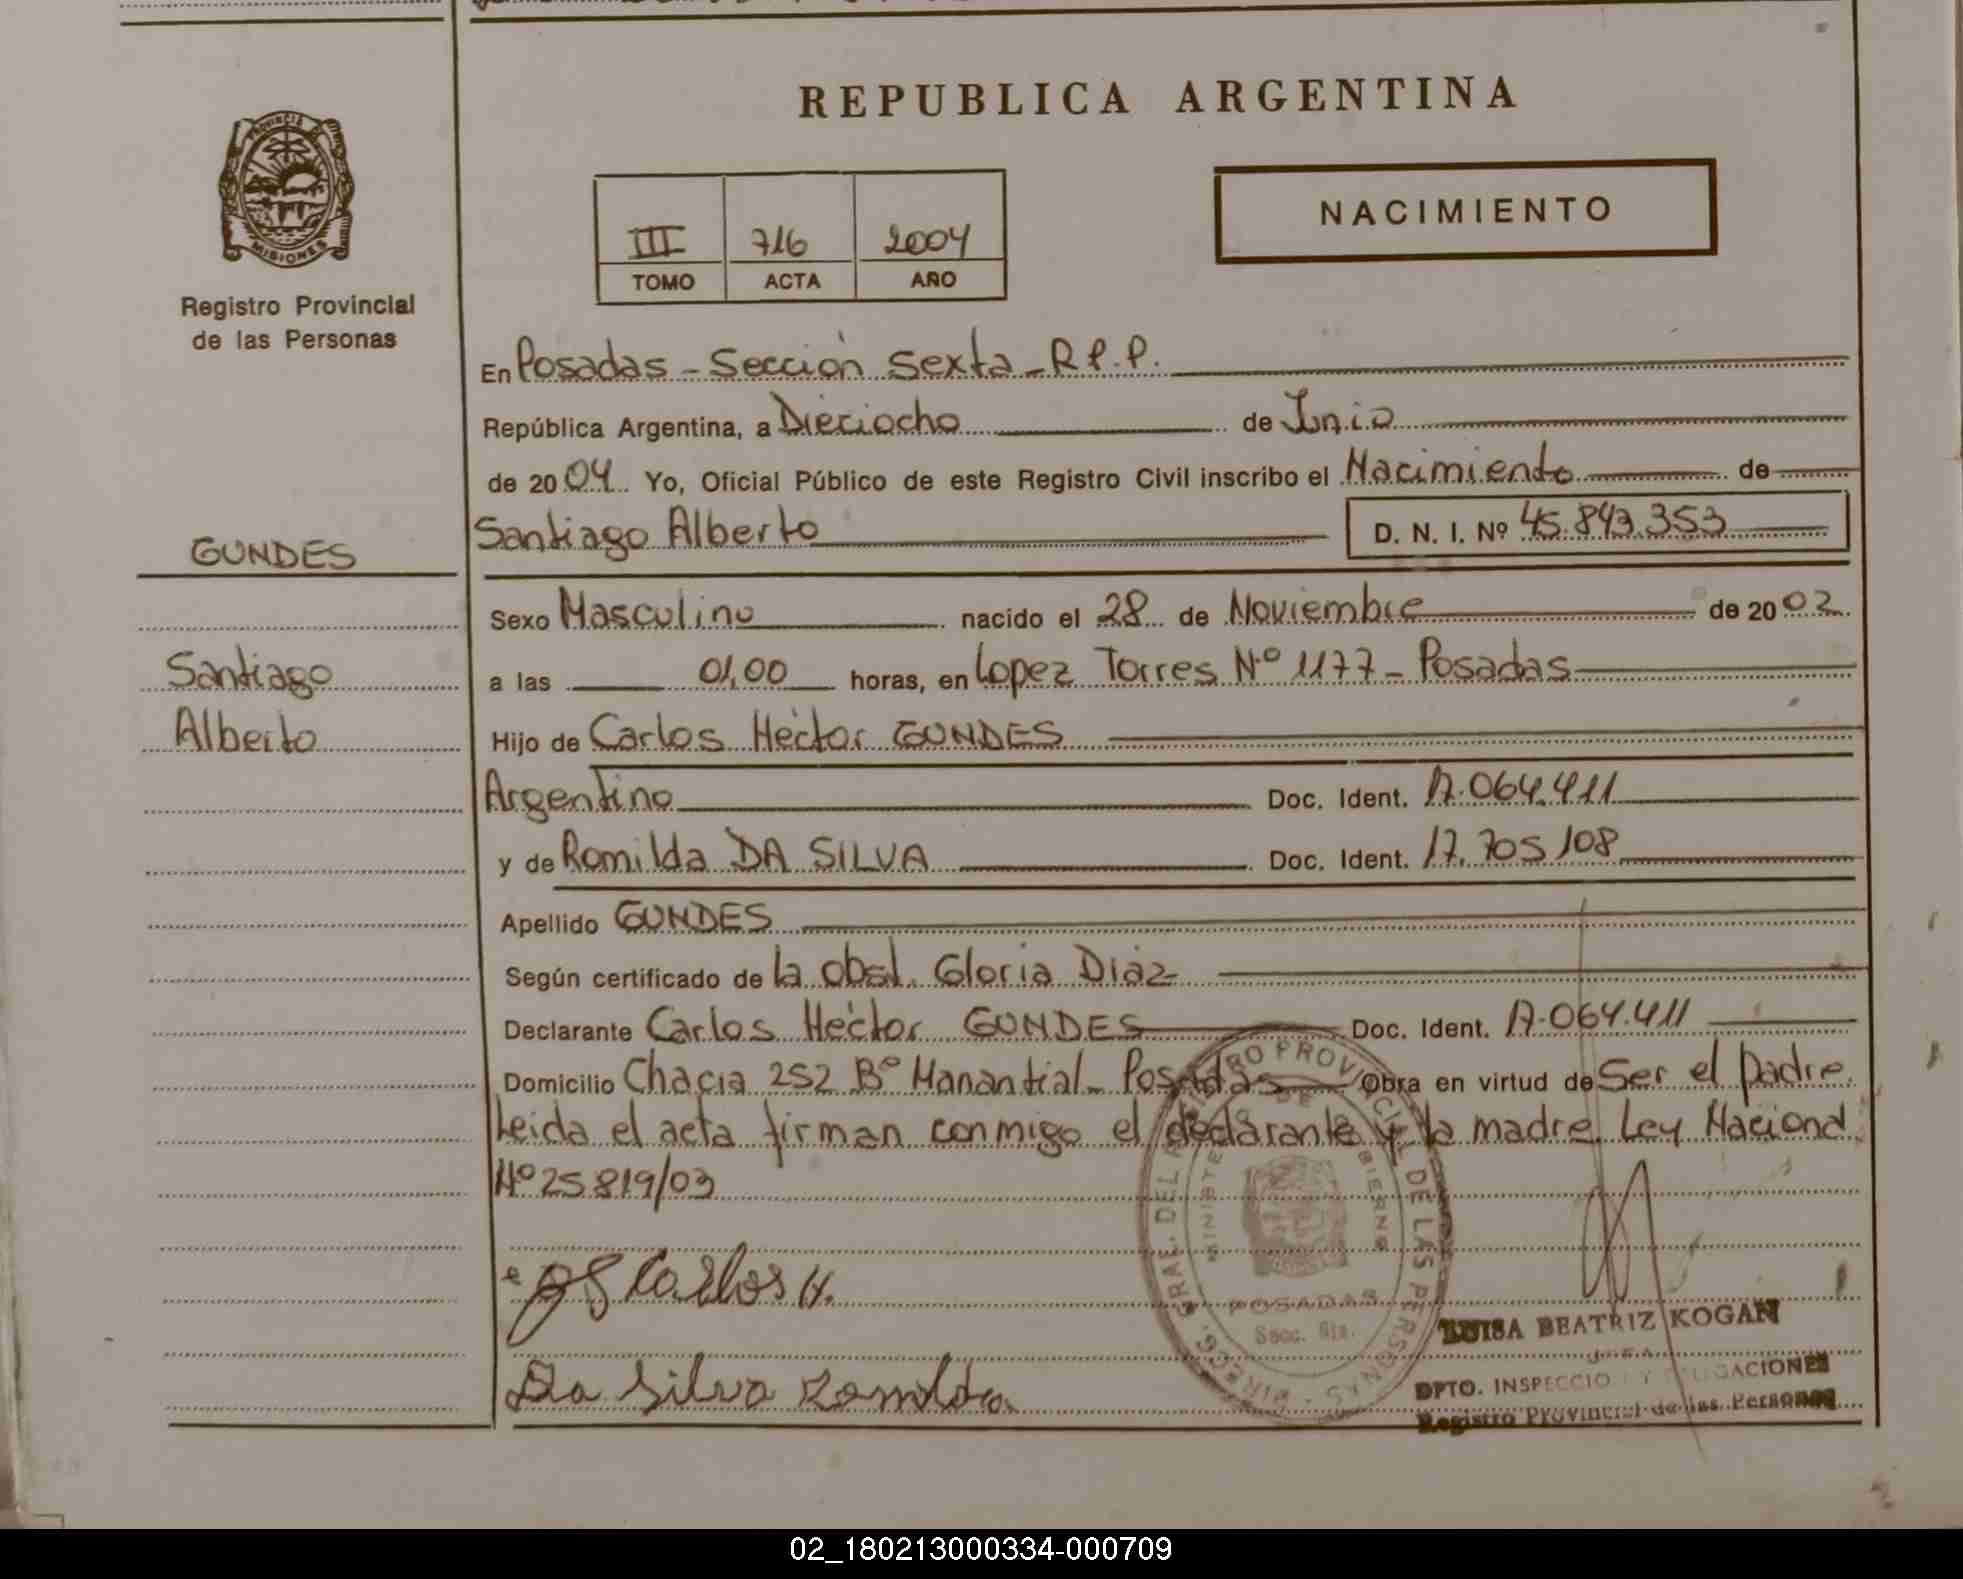 REPUBLICA ARGENTINA
PROVINCIA DE
MISIONES
Registro Provincial
de las Personas
NACIMIENTO
III 716 2004
TOMO ACTA AÑO
En Posadas - Sección Sexta - R.P.P.
República Argentina, a Dieciocho de Junio
de 2004 Yo, Oficial Público de este Registro Civil inscribo el Nacimiento de
Santiago Alberto D. N. I. Nº 45.843.353
GUNDES
Sexo Masculino nacido el 28 de Noviembre de 2002
Santiago
a las 01,00 horas, en Lopez Torres Nº 1177 - Posadas
Alberto
Hijo de Carlos Héctor GUNDES
Argentino Doc. Ident. 17.064.411
y de Romilda DA SILVA Doc. Ident. 17.705.108
Apellido GUNDES
Según certificado de la obst. Gloria Diáz
Declarante Carlos Héctor GUNDES Doc. Ident. 17.064.411
Domicilio Chacra 252 Bº Manantial - Posadas Obra en virtud de Ser el padre.
Leida el acta firman conmigo el declarante y la madre. Ley Nacional
Nº 25819/03
Carlos H.
Da Silva Romilda
DIRECC. GRAL. DEL REGISTRO PROVINCIAL DE LAS PERSONAS
MINISTERIO DE GOBIERNO
POSADAS
Secc. 6ta.
LUISA BEATRIZ KOGAN
JEFA
DPTO. INSPECCION Y
Registro Provincial de las Personas
02_180213000334-000709